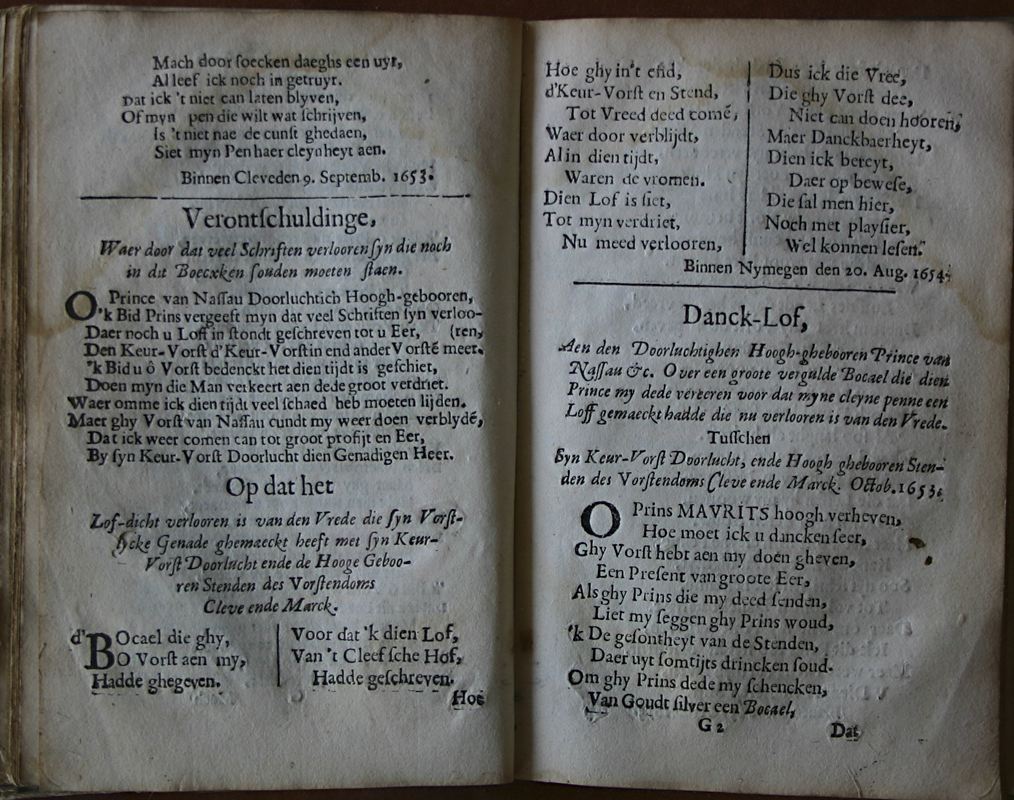 Mach door soecken daeghs een uyr,
Al leef ick noch in getruyr.
Dat ick 't niet can laten blyven,
Of myn pen die wilt wat schrijven,
Is 't niet nae de cunst ghedaen,
Siet myn Pen haer cleynheyt aen.
Binnen Cleveden 9. Septemb. 1653.
Verontschuldinge,
Waer door dat veel Schriften verlooren syn die noch
in dit Boecxken souden moeten staen.
O Prince van Nassau Doorluchtich Hoogh-gebooren,
'k Bid Prins vergeeft myn dat veel Schriften syn verloo-
Daer noch u Loff in stondt geschreven tot u Eer, (ren,
Den Keur-Vorst d'Keur-Vorstin end ander Vorstē meer.
'k Bid u ô Vorst bedenckt het dien tijdt is geschiet,
Doen myn die Man verkeert aen dede groot verdriet.
Waer omme ick dien tijdt veel schaed heb moeten lijden.
Maer ghy Vorst van Nassau cundt my weer doen verblydē,
Dat ick weer comen can tot groot profijt en Eer,
By syn Keur-Vorst Doorlucht dien Genadigen Heer.
Op dat het
Lof-dicht verlooren is van den Vrede die syn Vorst-
licke Genade ghemaeckt heeft met syn Keur-
Vorst Doorlucht ende de Hooge Geboo-
ren Stenden des Vorstendoms
Cleve ende Marck.
d'BOcael die ghy,
O Vorst aen my,
Hadde ghegeven.
Voor dat 'k dien Lof,
Van 't Cleefsche Hof,
Hadde geschreven.
Hoe
Hoe ghy in't end,
d'Keur-Vorst en Stend,
Tot Vreed deed comē,
Waer door verblijdt,
Al in dien tijdt,
Waren de vromen.
Dien Lof is siet,
Tot myn verdriet,
Nu meed verlooren,
Dus ick die Vree,
Die ghy Vorst dee,
Niet can doen hooren,
Maer Danckbaerheyt,
Dien ick bereyt,
Daer op bewese,
Die sal men hier,
Noch met playsier,
Wel konnen lesen.
Binnen Nymegen den 20. Aug. 1654.
Danck-Lof,
Aen den Doorluchtighen Hoogh-ghebooren Prince van
Nassau &c. Over een groote vergulde Bocael die dien
Prince my dede vereeren voor dat myne cleyne penne een
Loff gemaeckt hadde die nu verlooren is van den Vrede.
Tusschen
Syn Keur-Vorst Doorlucht, ende Hoogh ghebooren Sten-
den des Vorstendoms Cleve ende Marck. Octob. 1653.
O Prins MAVRITS hoogh verheven,
Hoe moet ick u dancken seer,
Ghy Vorst hebt aen my doen gheven,
Een Present van groote Eer,
Als ghy Prins die my deed senden,
Liet my seggen ghy Prins woud,
'k De gesontheyt van de Stenden,
Daer uyt somtijts drincken soud.
Om ghy Prins dede my schencken,
Van Goudt silver een Bocael,
G 2
Dat